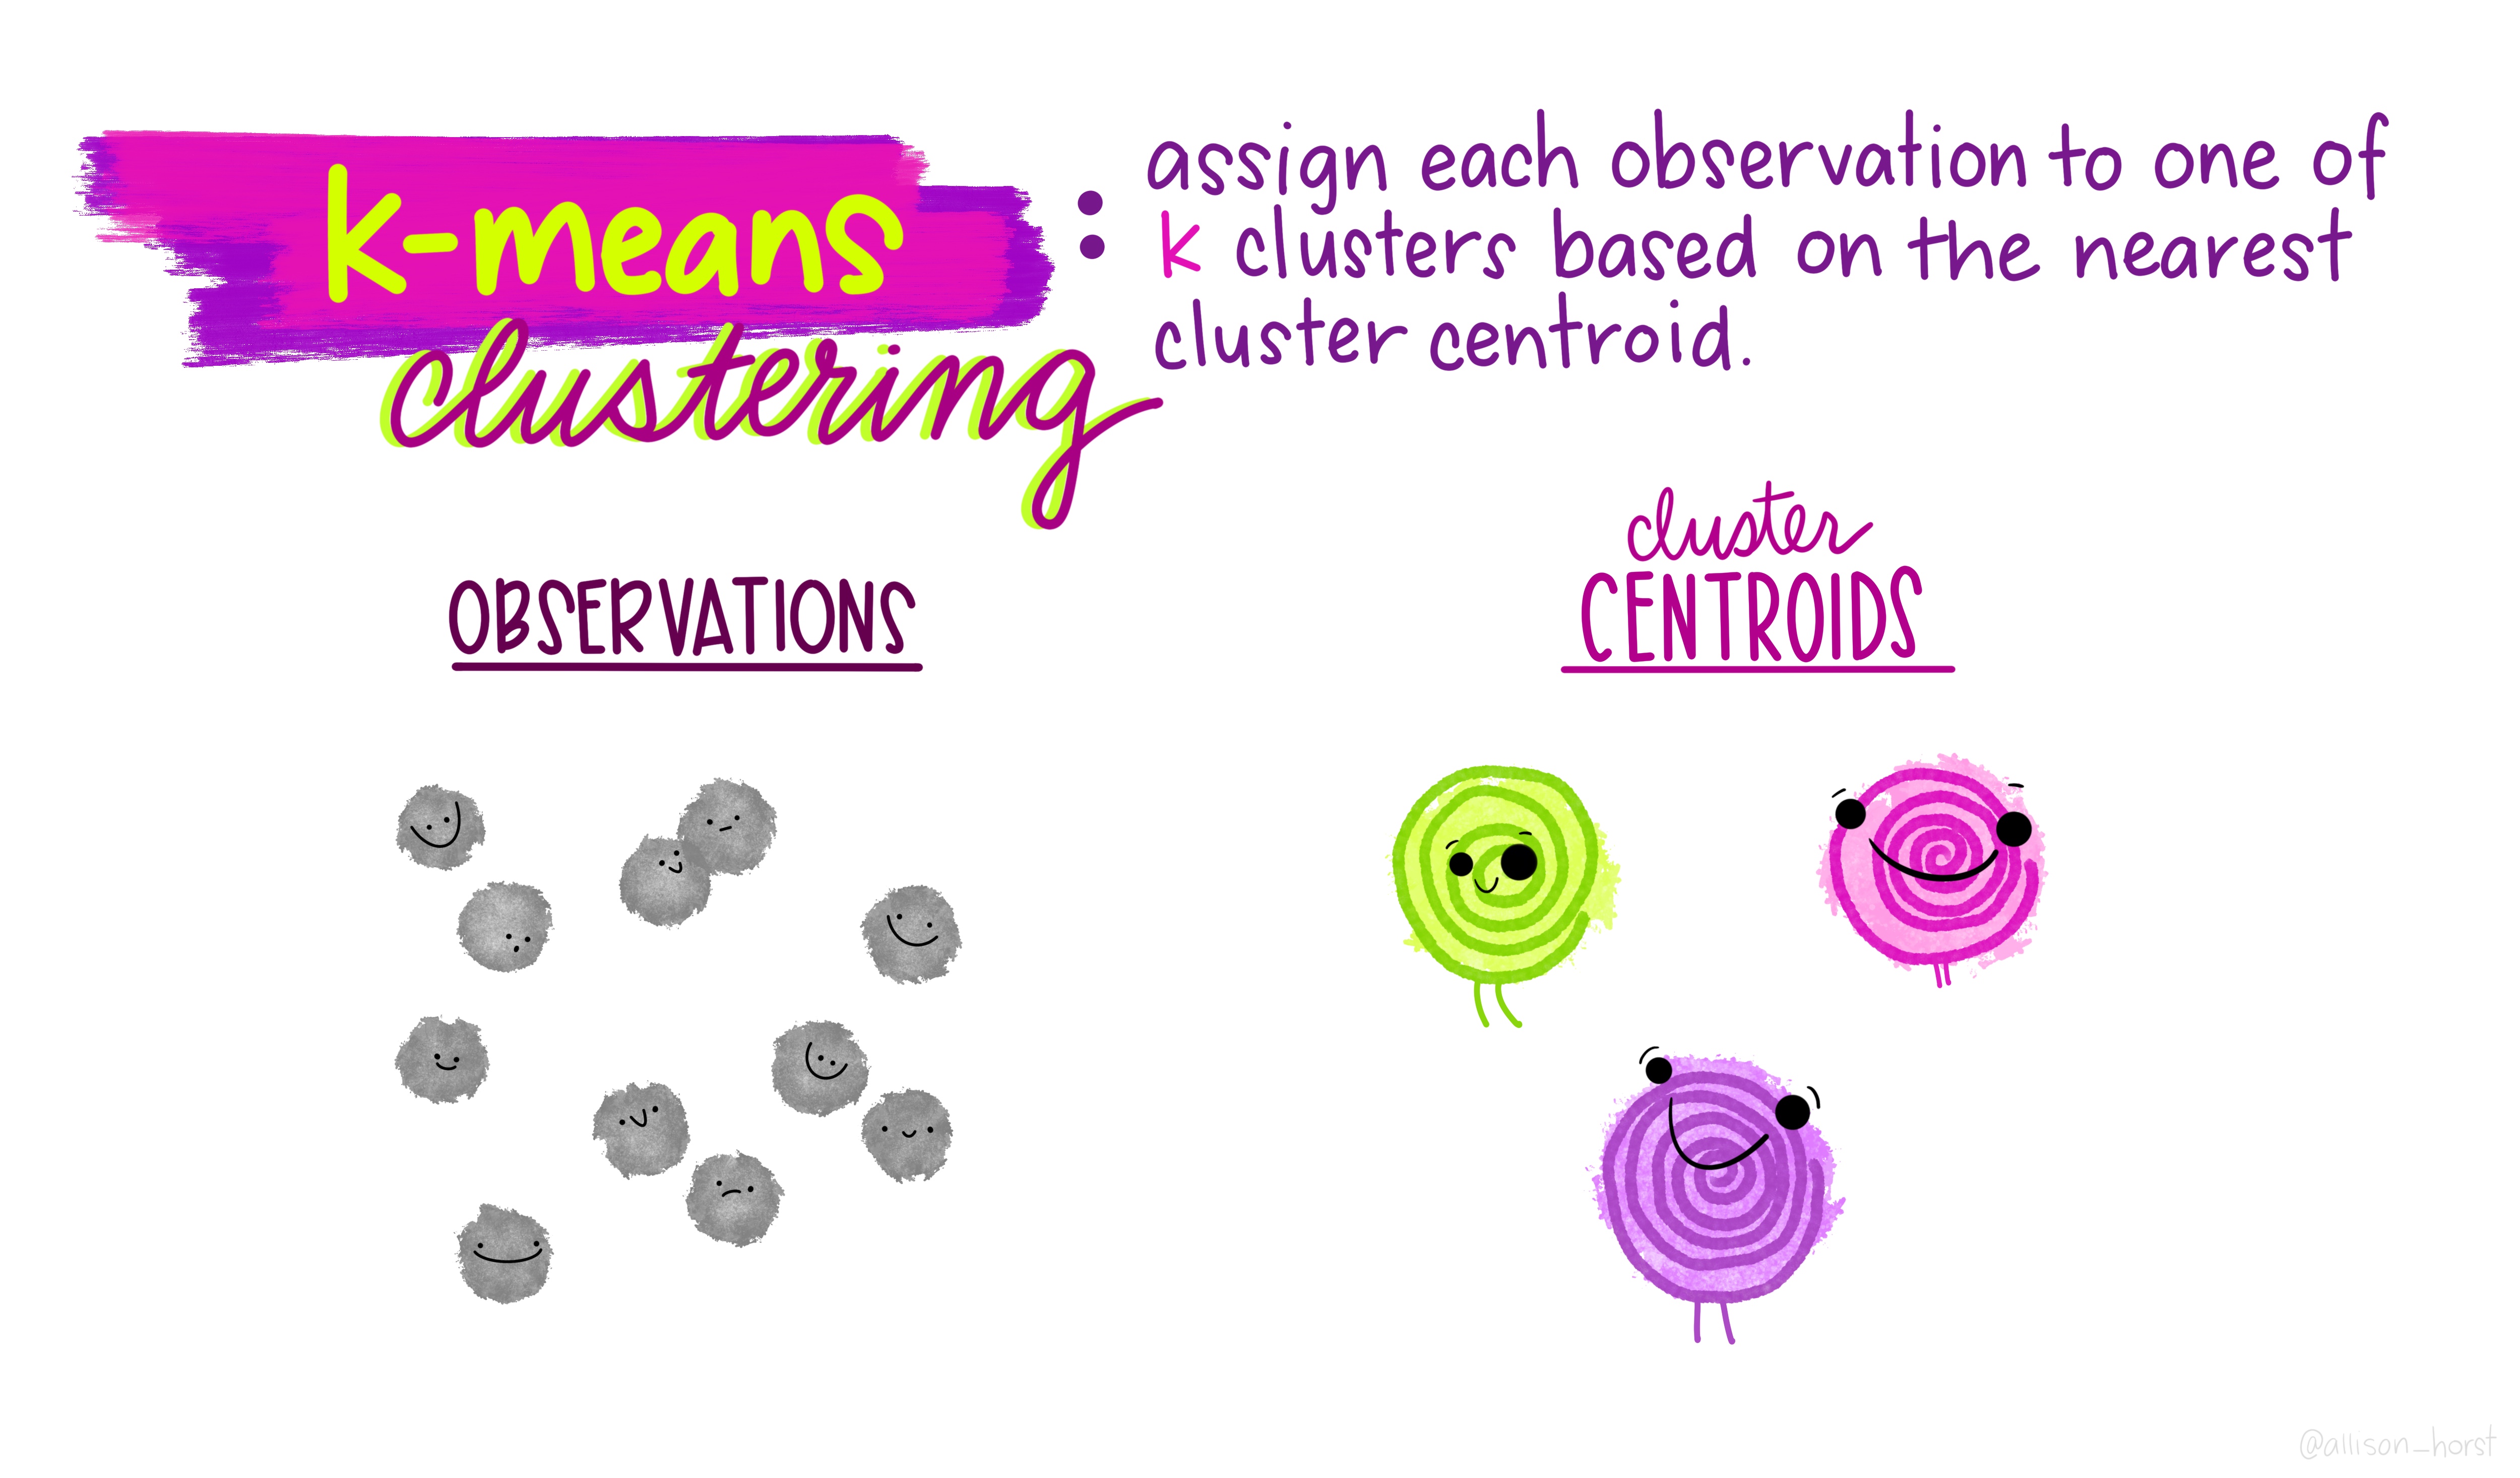 k-means
clustering
: assign each observation to one of
k clusters based on the nearest
cluster centroid.
OBSERVATIONS
cluster
CENTROIDS
@allison_horst